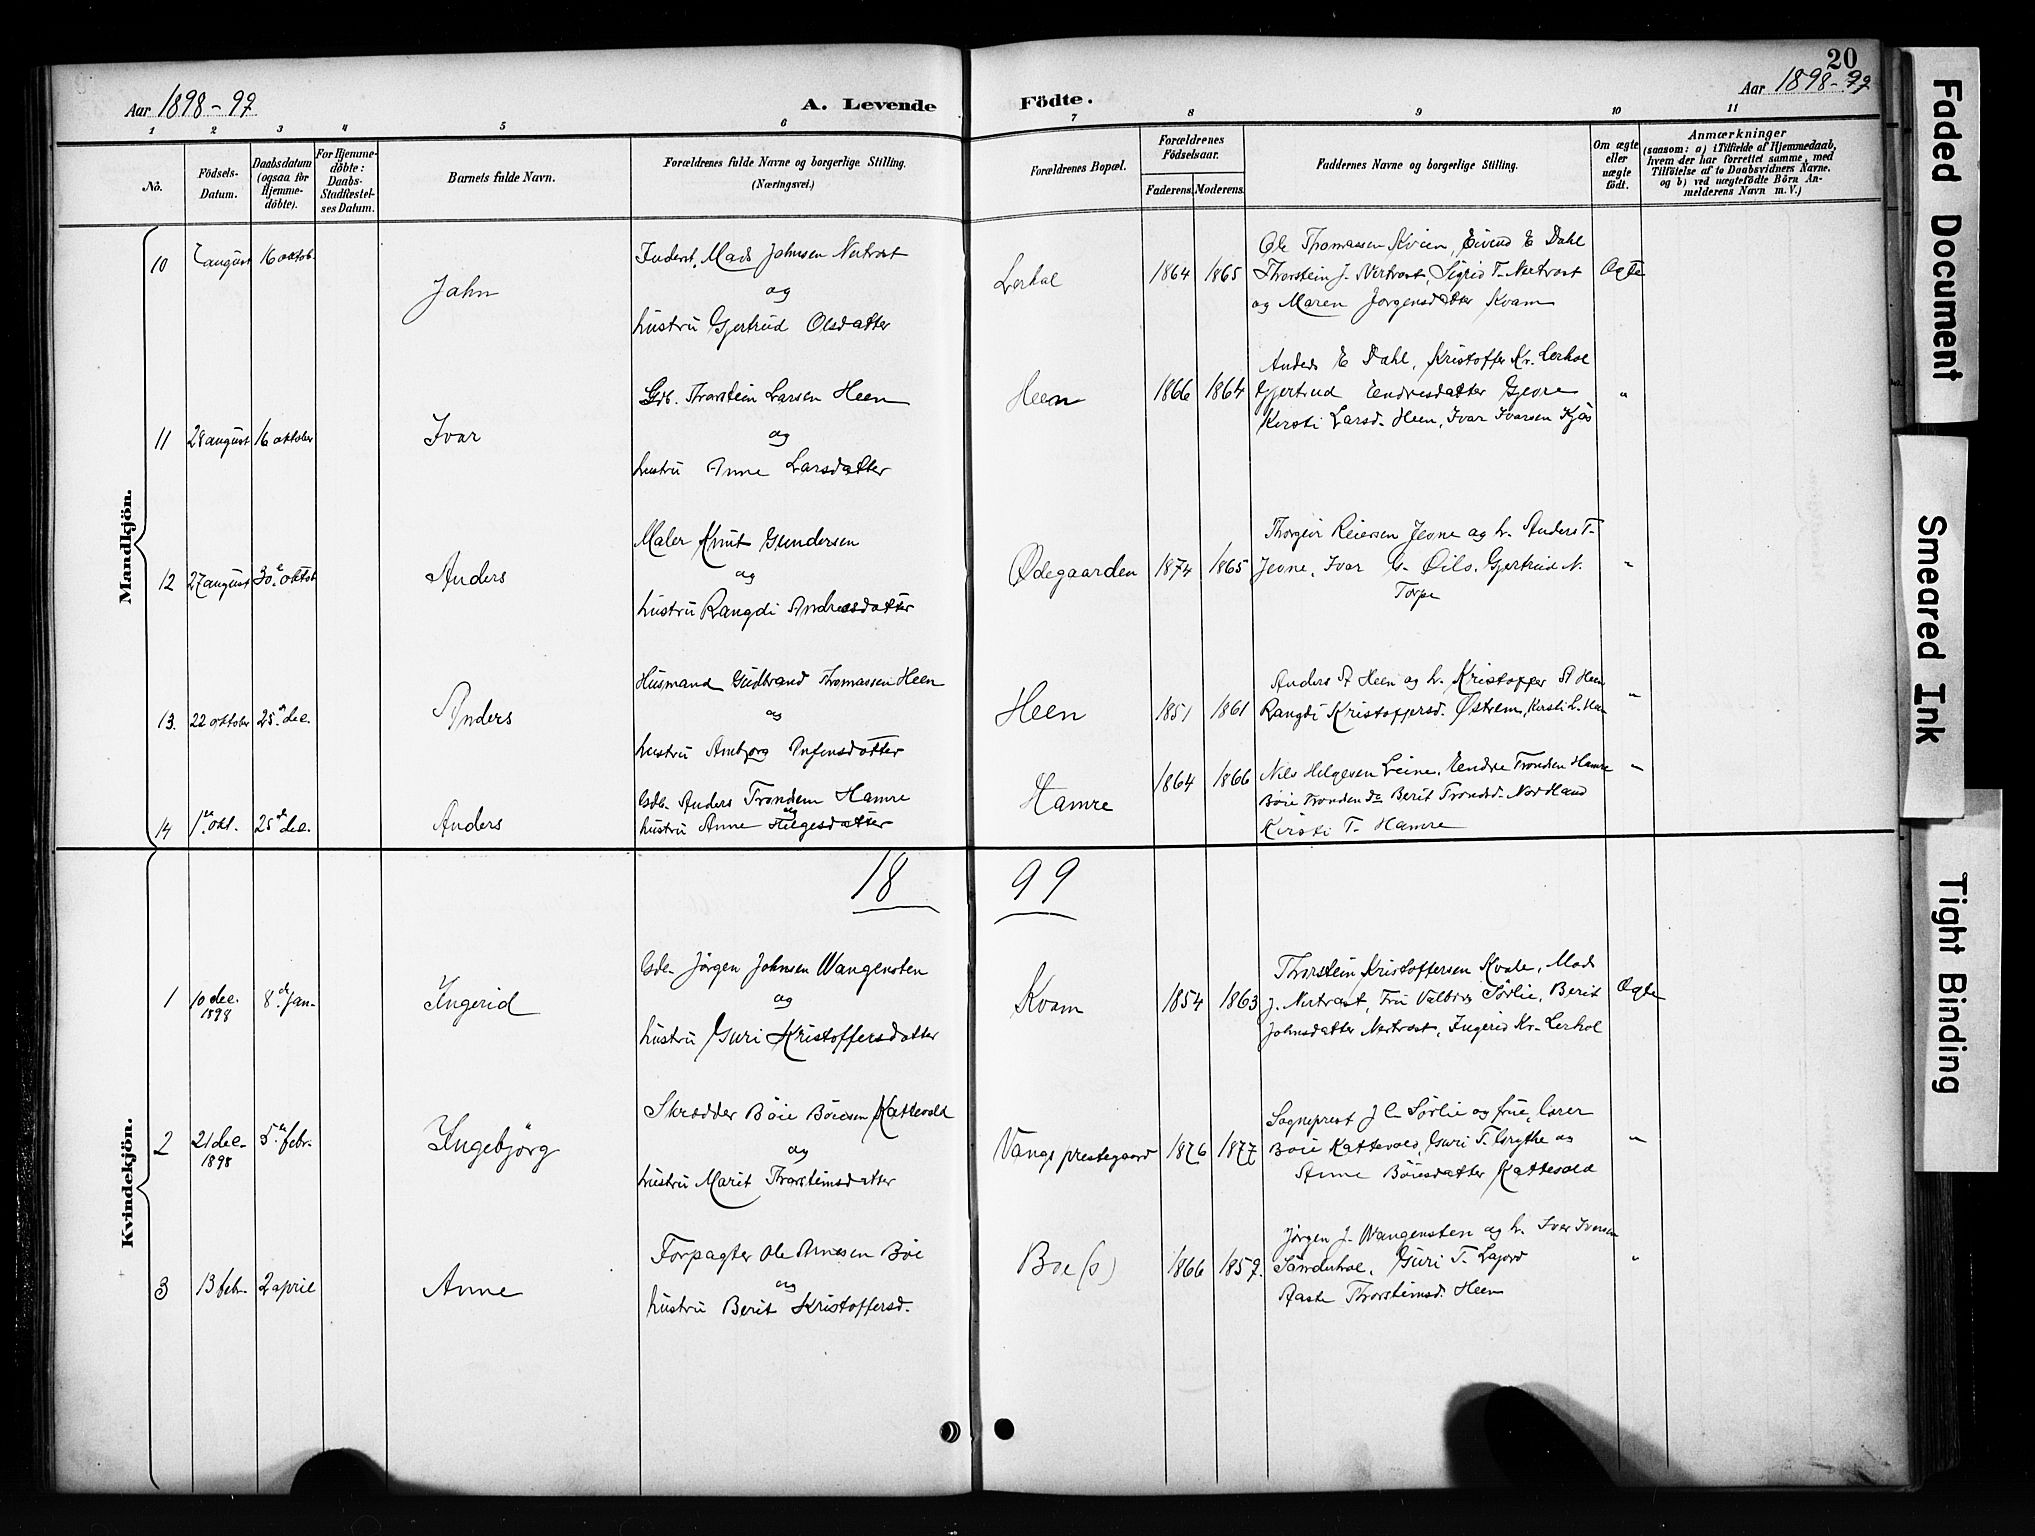 20
Aar 1898-99
A. Levende
Födte.
Aar 1898-99
1 2 3 4 5 6 7 8 9 10 11
No.
Födsels-Datum.
Daabsdatum (ogsaa for Hjemme-döbte).
For Hjemme-döbte: Daabs-Stadfæstel-ses Datum.
Barnets fulde Navn.
Forældrenes fulde Navne og borgerlige Stilling. (Næringsvei.)
Forældrenes Bopæl.
Forældrenes Födselsaar.
Faderens. Moderens.
Faddernes Navne og borgerlige Stilling.
Om ægte eller uægte födt.
Anmærkninger
(saasom: a) i Tilfælde af Hjemmedaab, hvem der har forrettet samme, med Tilföielse af to Daabsvidners Navne. og b) ved uægtefödte Börn An-melderens Navn m. V.)
Mandkjön.
10 7 august 16 oktob. Jahn
Inderst. Mads Johnsen Nertrost
og
hustru Gjertrud Olsdatter
Lerhol 1864 1865
Ole Thomassen Kvien, Eivind E Dahl
Thorstein J. Nertrost, Sigrid T. Nertrost
og Maren Jørgensdatter Kvam
Ægte
11 28 august 16 oktober Ivar
Gdb. Thorstein Larsen Heen
og
hustru Anne Larsdatter
Heen 1866 1864
Anders E Dahl, Kristoffer Kr. Lerhol
Gjertrud Endresdatter Gjevre
Kersti Larsd. Heen, Ivar Ivarsen Kjøs
"
12 27 august 30te oktob Anders
Maler Knut Gundersen
og
hustru Rangdi Andreasdatter
Ødegaarden 1874 1865
Thorgeir Reiersen Jevne og h. Anders T.
Jevne, Ivar Øils. Gjertrud N.
Torpe
"
13. 22 oktober 25de dec. Anders
Husmand Gudbrand Thomassen Heen
og
hustru Ambjørg Arfinsdatter
Heen 1851 1861
Anders A Heen og h. Kristoffer A Heen
Rangdi Kristoffersd. Østrem, Kersti L. Heen
"
14 1ste okt. 25de dec. Anders
Gdb. Anders Trondsen Hamre
og
hustru Anne Helgesdatter
Hamre 1864 1866
Nils Helgesen Leine, Endre Trondsen Hamre
Boie Trondsen do Berit Trondsd. Nordland
Kirsti T. Hamre
"
18 99
Kvindekjön.
1 10 dec. 1898 8de jan. Ingerid
Gdb. Jörgen Johnsen Wangensten
og
hustru Guri Kristoffersdatter
Kvam 1854 1863
Thorstein Kristoffersen Kvale, Mads
J. Nertrost, Fru Valborg Sørlie, Berit
Johnsdatter Nertrost, Ingerid Kr. Lerhol
Ægte
2 21 dec. 1898 5te febr. Ingebjörg
Skrædder Böie Böiesen Kattevold
og
hustru Marit Thorsteinsdatter
Vangs prestegaard 1876 1877
Sogneprest J C Sørlie og frue, lærer
Boie Kattevold, Guri T. Grythe og
Anne Böiesdatter Kattevold
"
3 13 febr. 2 april Anne
Forpagter Ole Arnesen Böe
og
hustru Berit Kristoffersd.
Boe (s) 1866 1857.
Jørgen J. Wangensten og h. Iver Iversen
Sønderhol, Guri T. Lajord
Aaste Thorsteinsd. Heen
"
Faded Document
Smeared Ink
Tight Binding